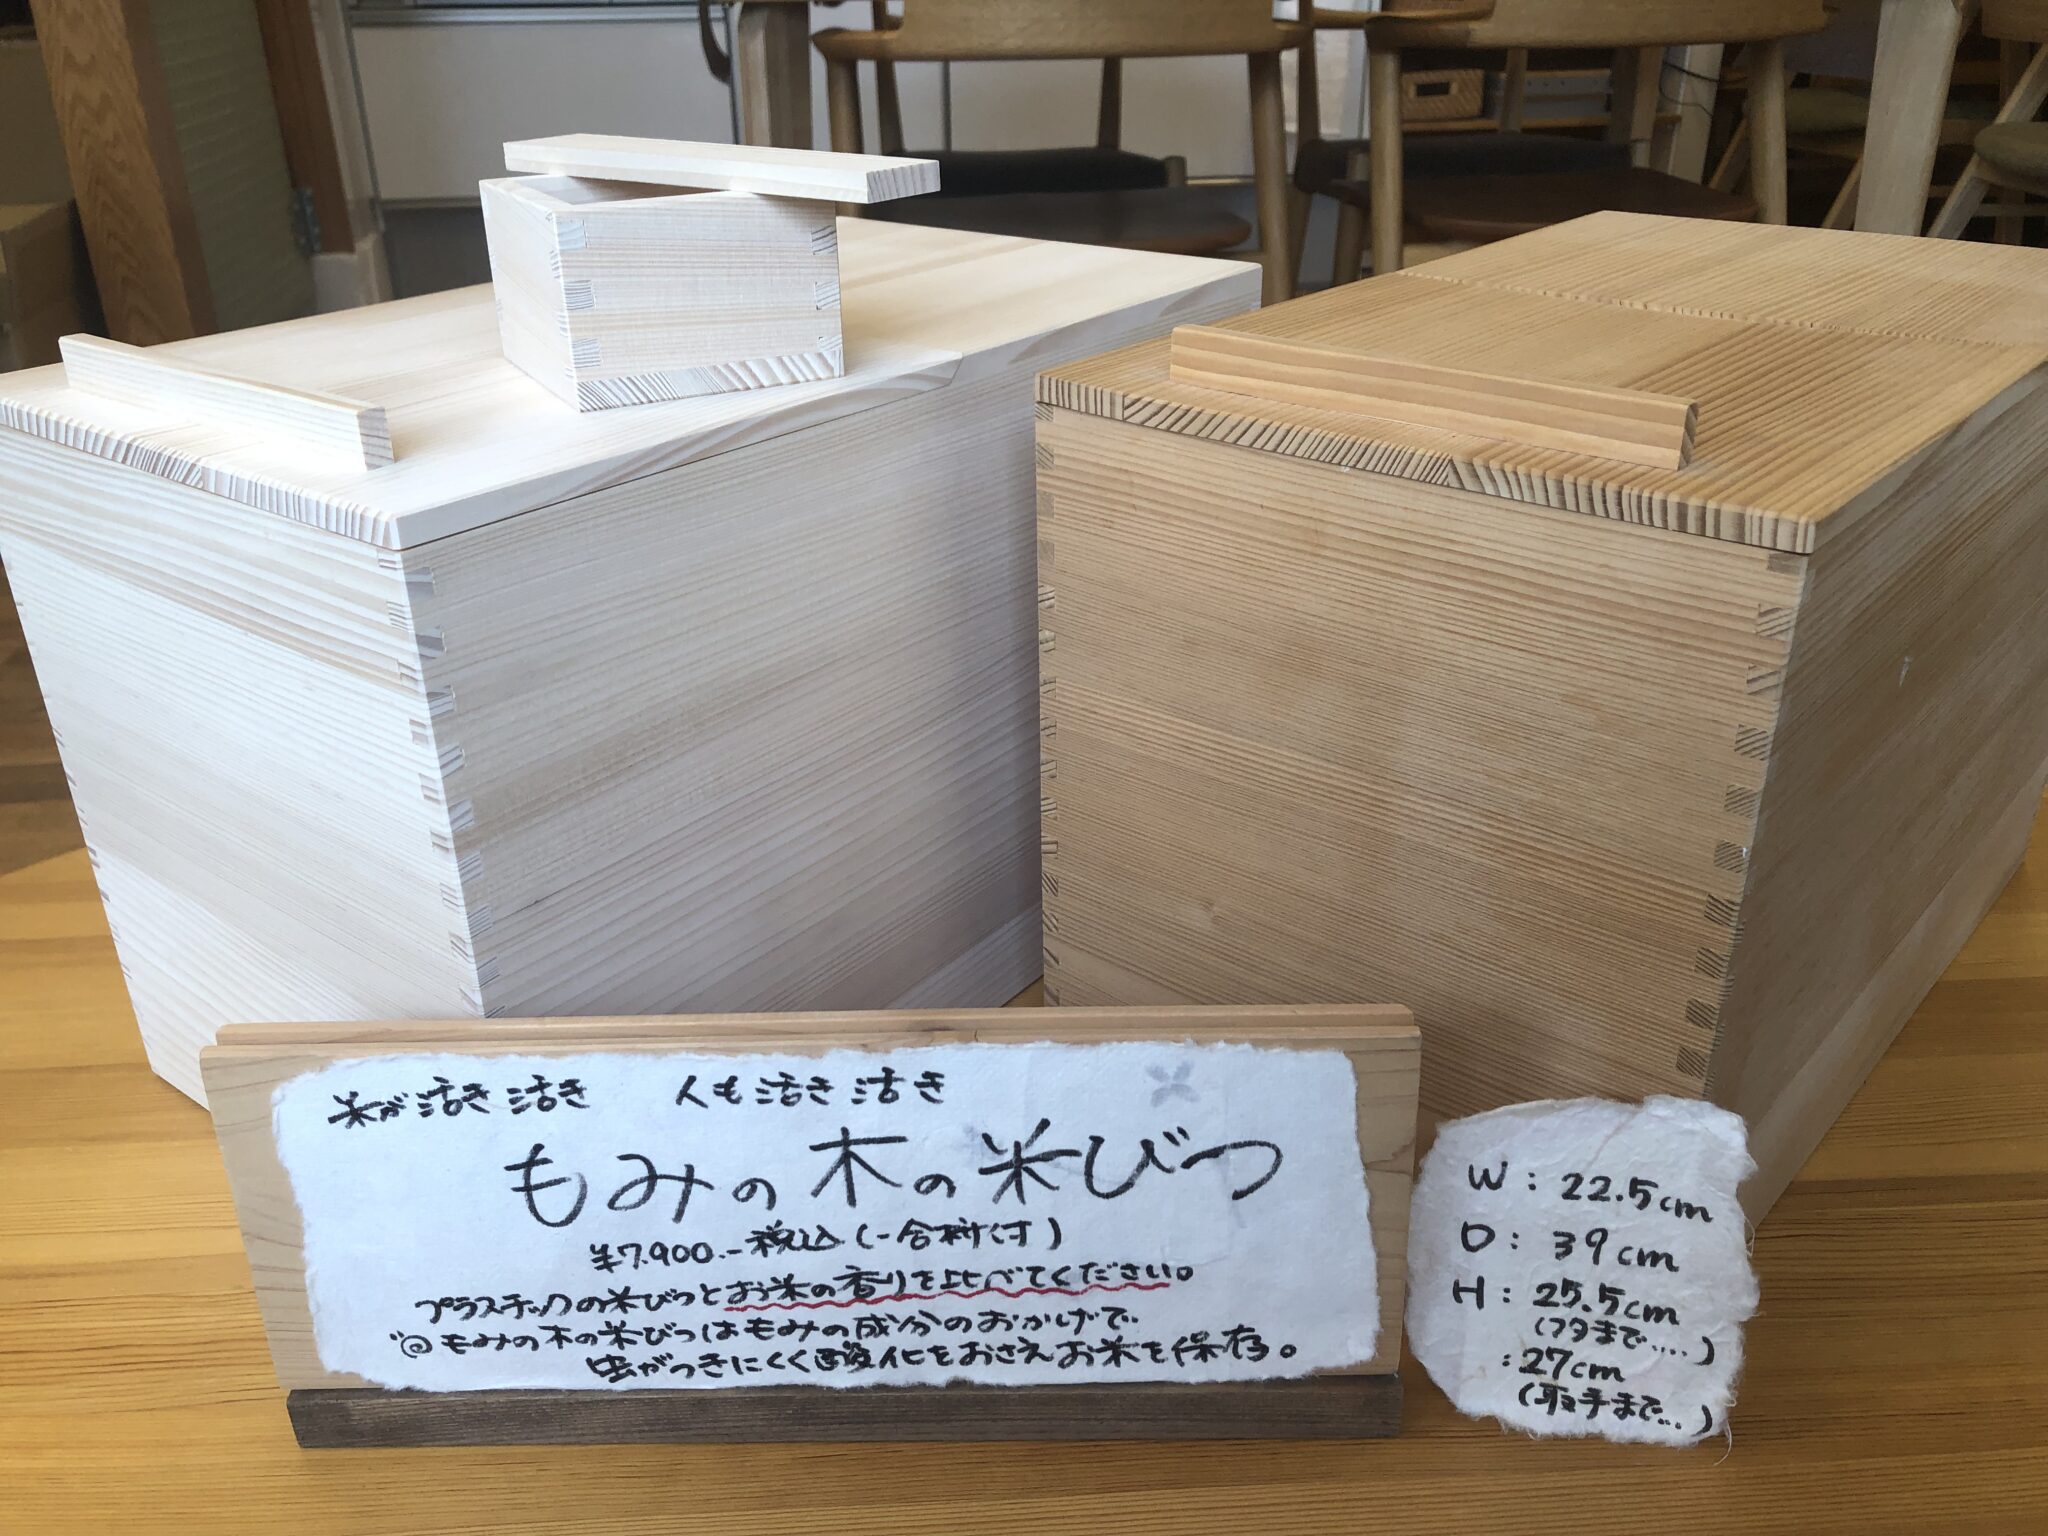 米が活き活き 人も活き活き
もみの木の米びつ
¥7.900.-税込(一合枡付)
プラスチックの米びつとお米の香りを比べてください。
もみの木の米びつはもみの成分のおかげで
虫がつきにくく酸化をおさえお米を保存。
W: 22.5cm
D: 39cm
H: 25.5cm
(フタまで.....)
:27cm
(取手まで...)